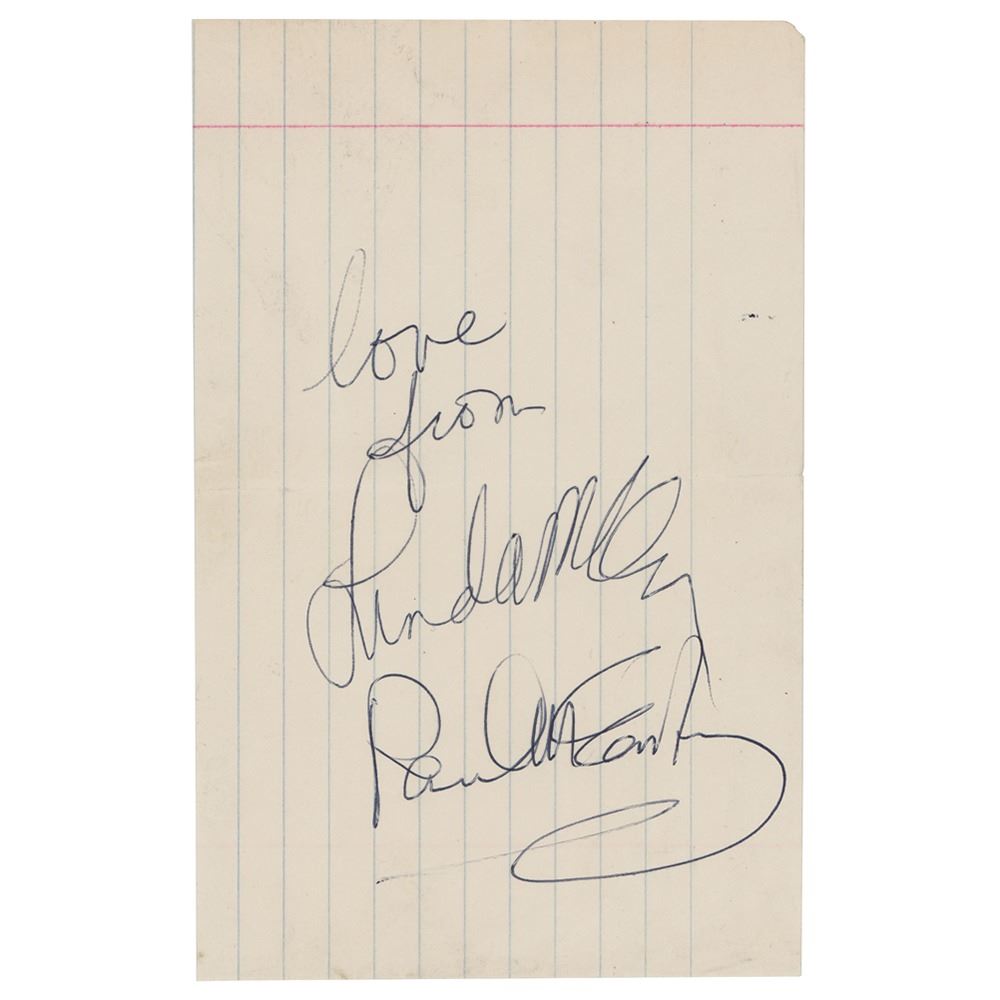 love
from
Linda McCy
Paul McCartney